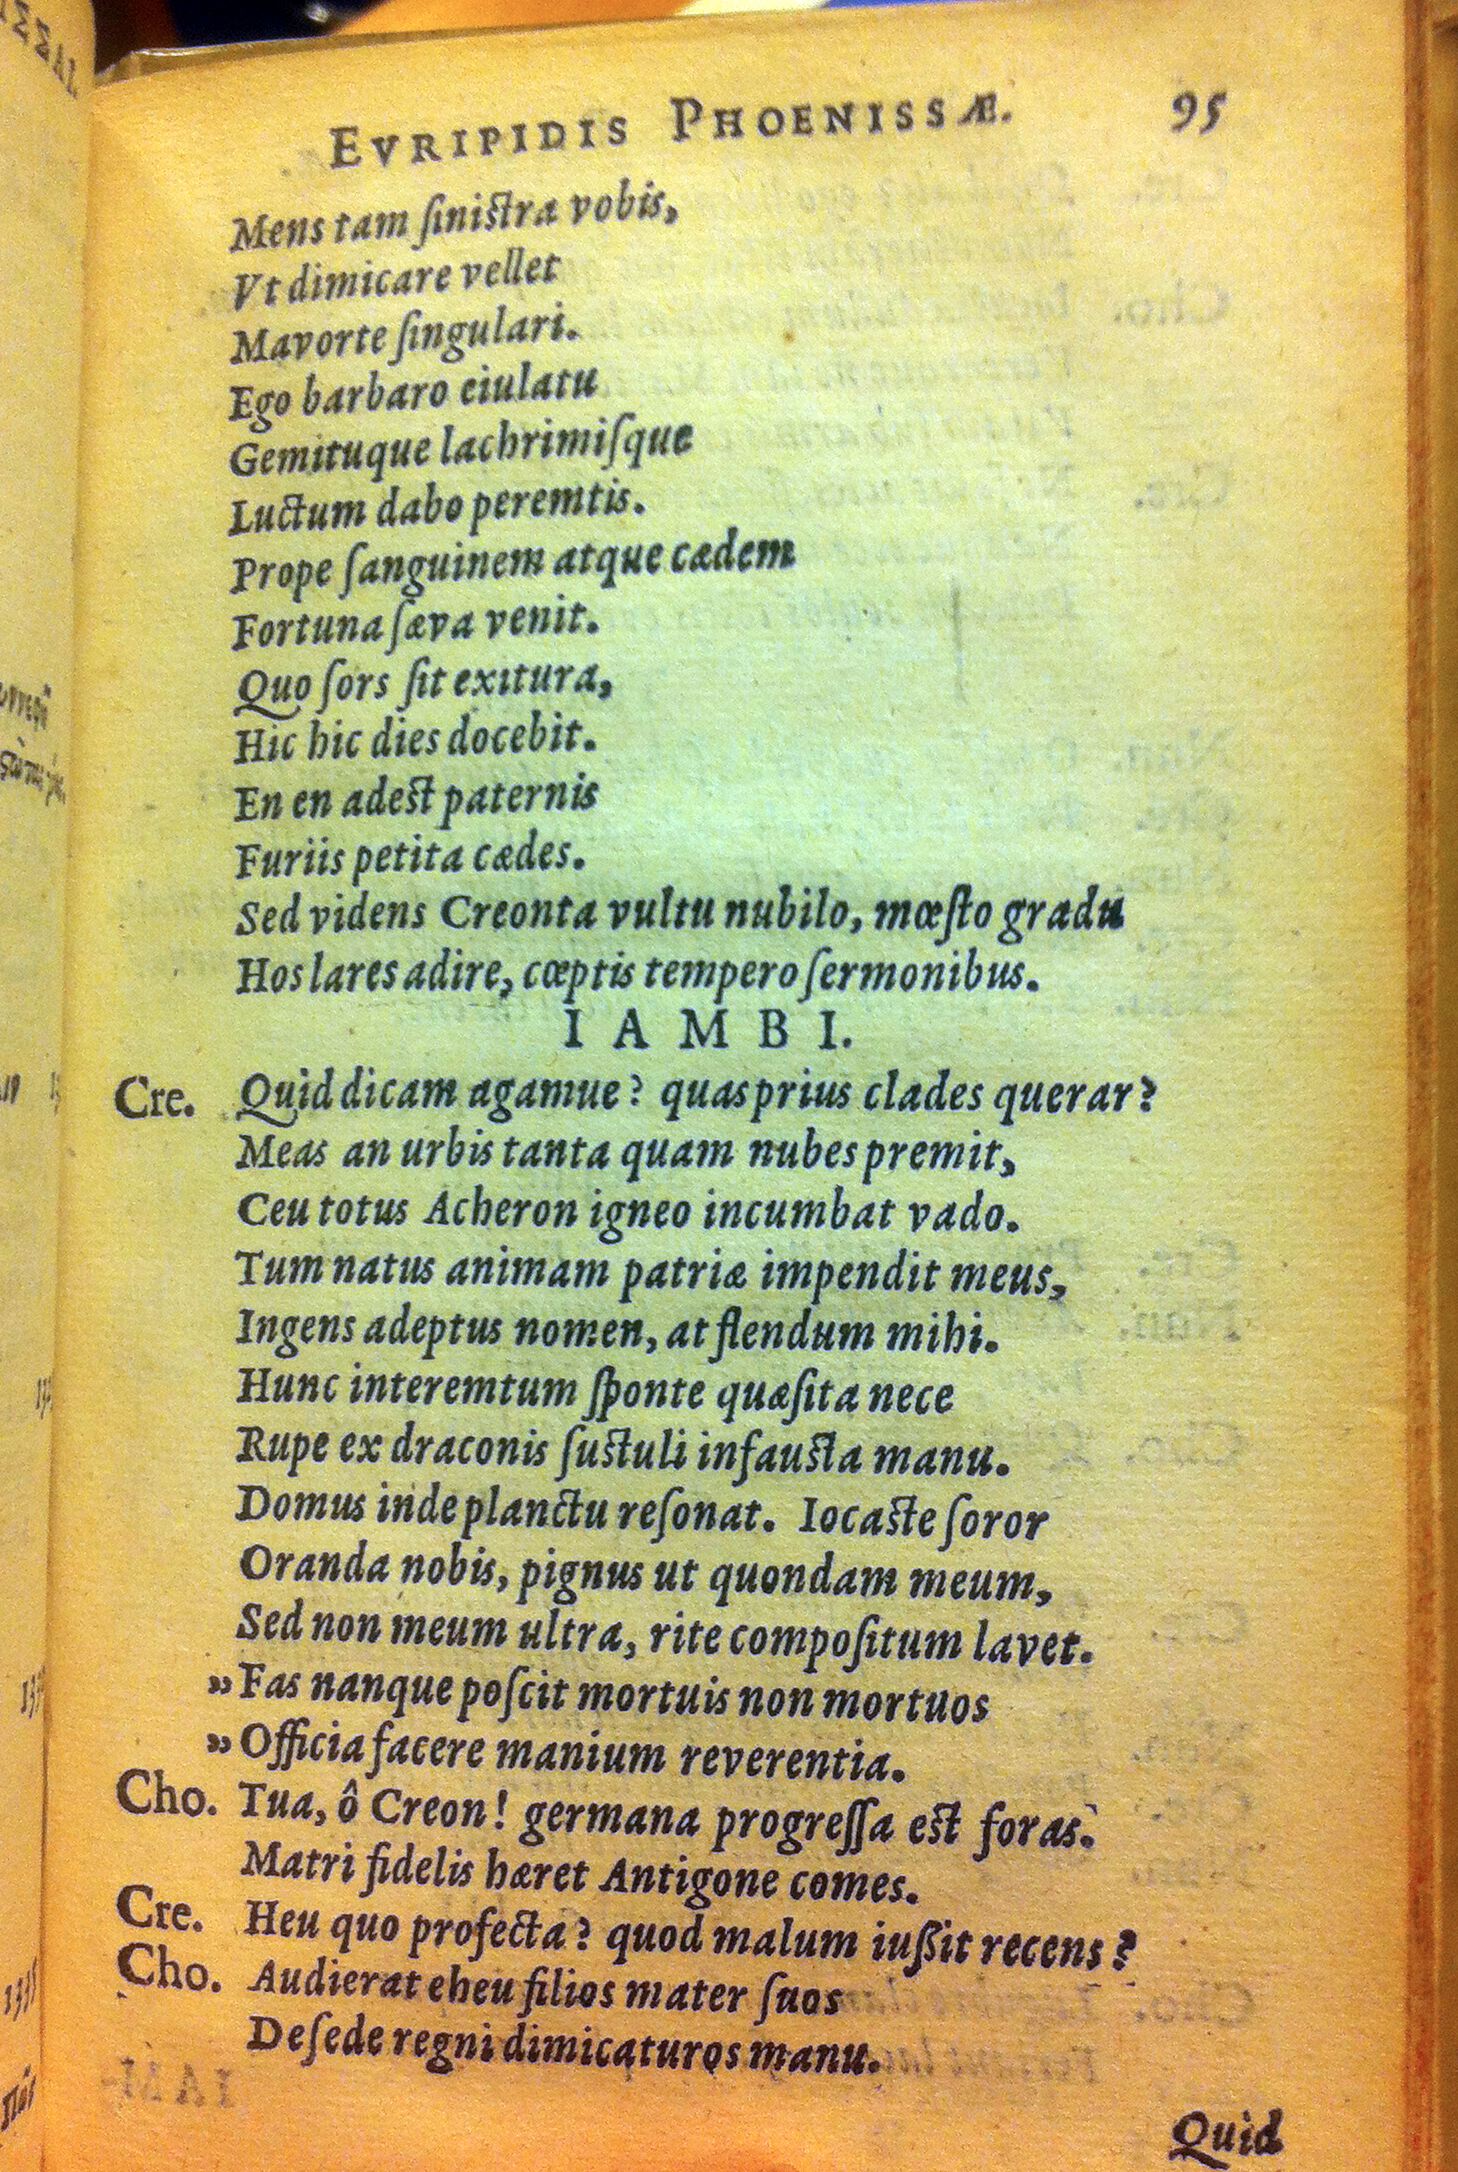 EVRIPIDIS PHOENISSÆ. 95
Mens tam ſiniſtra vobis,
Vt dimicare vellet
Mavorte ſingulari.
Ego barbaro eiulatu
Gemituque lachrimiſque
Luctum dabo peremtis.
Prope ſanguinem atque cædem
Fortuna ſæva venit.
Quo ſors ſit exitura,
Hic hic dies docebit.
En en adeſt paternis
Furiis petita cædes.
Sed videns Creonta vultu nubilo, mœſto gradu
Hos lares adire, cœptis tempero ſermonibus.
IAMBI.
Cre. Quid dicam agamue? quas prius clades querar?
Meas an urbis tanta quam nubes premit,
Ceu totus Acheron igneo incumbat vado.
Tum natus animam patriæ impendit meus,
Ingens adeptus nomen, at flendum mihi.
Hunc interemtum ſponte quæſita nece
Rupe ex draconis ſuſtuli infauſta manu.
Domus inde planctu reſonat. Iocaſte ſoror
Oranda nobis, pignus ut quondam meum,
Sed non meum ultra, rite compoſitum lavet.
„ Fas nanque poſcit mortuis non mortuos
„ Officia facere manium reverentia.
Cho. Tua, ô Creon! germana progreſſa eſt foras.
Matri fidelis hæret Antigone comes.
Cre. Heu quo profecta? quod malum iuſſit recens?
Cho. Audierat eheu filios mater ſuos
De ſede regni dimicaturos manu.
Quid